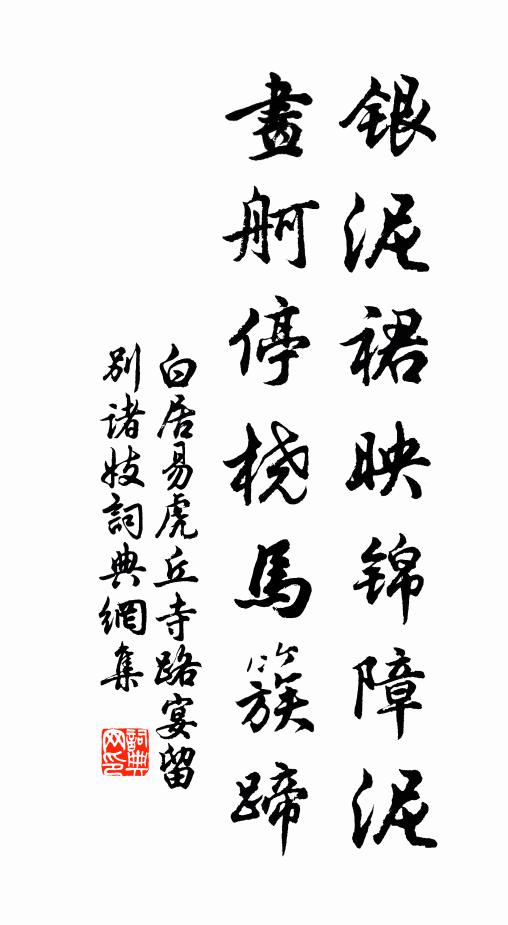 银泥裙映锦障泥
畫舸停桡馬簇蹄
白居易虎丘寺路宴留
别诸妓詞典網集
詞典
网印